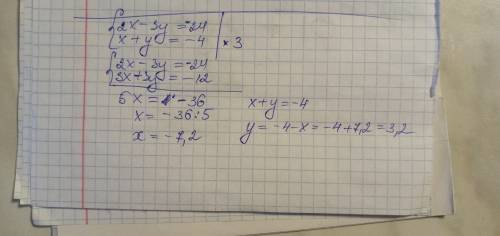 {2x-3y=-24
{x+y=-4 | × 3
{2x-3y=-24
{3x+3y=-12
5x=-36
x=-36:5
x=-7,2
x+y=-4
y=-4-x=-4+7,2=3,2